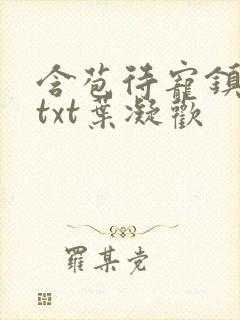 含苞待寵鎮
txt葉凝歡
羅某党